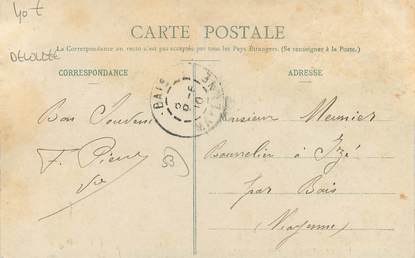 40 €
CARTE POSTALE
La Correspondance au recto n'est pas acceptée par tous les Pays Étrangers. (Se renseigner à la Poste.)
CORRESPONDANCE
ADRESSE
BAIS
Bon Souvenir
F. Pieu
53
Monsieur Meunier
Bourrelier à Izé
par Bais
(Mayenne)